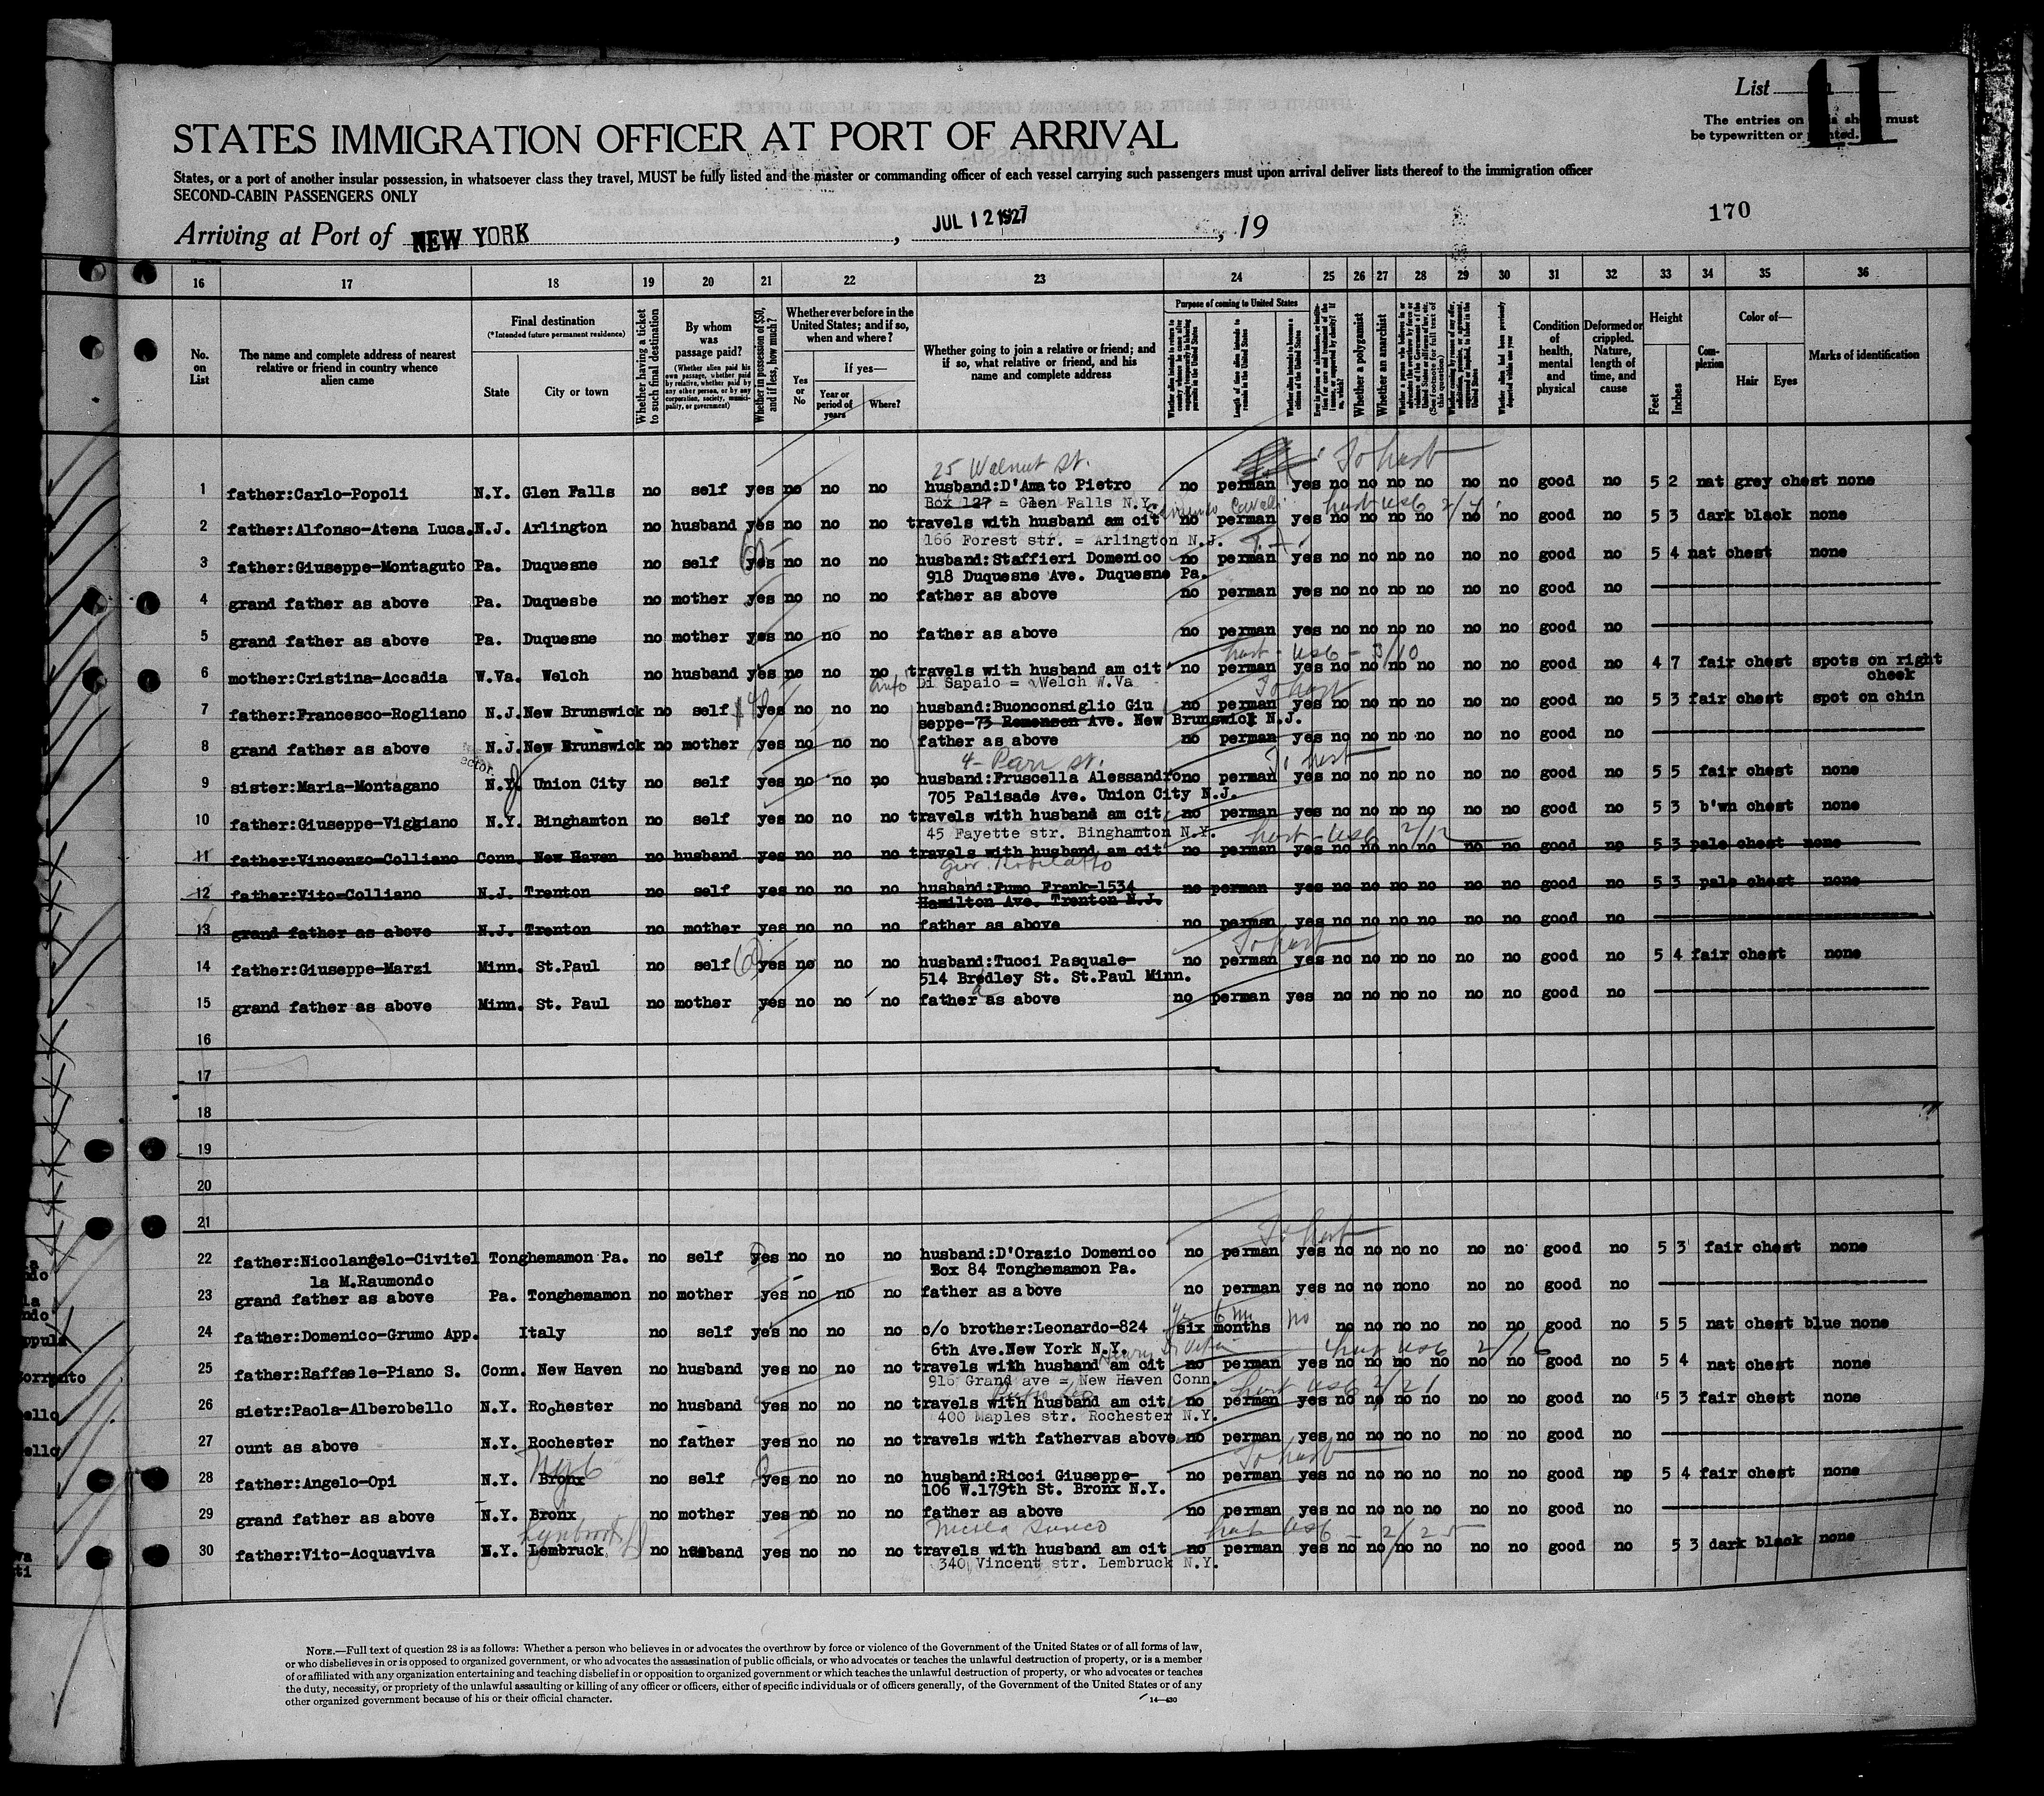 List 11
The entries on this sheet must
be typewritten or printed.
STATES IMMIGRATION OFFICER AT PORT OF ARRIVAL
States, or a port of another insular possession, in whatsoever class they travel, MUST be fully listed and the master or commanding officer of each vessel carrying such passengers must upon arrival deliver lists thereof to the immigration officer
SECOND-CABIN PASSENGERS ONLY
170
Arriving at Port of NEW YORK, JUL 12 1927, 19
16 17 18 19 20 21 22 23 24 25 26 27 28 29 30 31 32 33 34 35 36
No. on List
The name and complete address of nearest relative or friend in country whence alien came
Final destination
(*Intended future permanent residence)
State
City or town
Whether having a ticket to such final destination
By whom was passage paid?
(Whether alien paid his own passage, whether paid by relative, whether paid by any other person, or by any corporation, society, municipality, or government)
Whether in possession of $50, and if less, how much?
Whether ever before in the United States; and if so, when and where?
Yes or No
If yes—
Year or period of years
Where?
Whether going to join a relative or friend; and if so, what relative or friend, and his name and complete address
Purpose of coming to United States
Length of time alien intends to remain in the United States
Whether alien intends to become a citizen of the United States
Whether a polygamist
Whether an anarchist
Condition of health, mental and physical
Deformed or crippled. Nature, length of time, and cause
Height
Feet
Inches
Complexion
Color of—
Hair
Eyes
Marks of identification
25 Walnut St.
1 father:Carlo-Popoli N.Y. Glen Falls no self yes no no no husband:D'Amato Pietro no perman yes no no no no no no good no 5 2 nat grey chest none
Box 127 = Glen Falls N.Y.
2 father:Alfonso-Atena Luca. N.J. Arlington no husband yes no no no travels with husband am cit no perman yes no no no no no no good no 5 3 dark black none
166 Forest str. = Arlington N.J.
3 father:Giuseppe-Montaguto Pa. Duquesne no self yes no no no husband:Staffieri Domenico no perman yes no no no no no no good no 5 4 nat chest none
918 Duquesne Ave. Duquesne Pa.
4 grand father as above Pa. Duquesbe no mother yes no no no father as above no perman yes no no no no no no good no
5 grand father as above Pa. Duquesne no mother yes no no no father as above no perman yes no no no no no no good no
6 mother:Cristina-Accadia W.Va. Welch no husband yes no no no travels with husband am cit no perman yes no no no no no no good no 4 7 fair chest spots on right cheek
Di Sapaio = Welch W.Va
7 father:Francesco-Rogliano N.J. New Brunswick no self yes no no no husband:Buonconsiglio Giu no perman yes no no no no no no good no 5 3 fair chest spot on chin
seppe-73 Remensen Ave. New Brunswick N.J.
8 grand father as above N.J. New Brunswick no mother yes no no no father as above no perman yes no no no no no no good no
9 sister:Maria-Montagano N.Y. Union City no self yes no no no husband:Fruscella Alessandro no perman yes no no no no no no good no 5 5 fair chest none
705 Palisade Ave. Union City N.J.
10 father:Giuseppe-Viggiano N.Y. Binghamton no self yes no no no travels with husband am cit no perman yes no no no no no no good no 5 3 b'wn chest none
45 Fayette str. Binghamton N.Y.
11 father:Vincenzo-Colliano Conn. New Haven no husband yes no no no travels with husband am cit no perman yes no no no no no no good no 5 3 pale chest none
12 father:Vito-Colliano N.J. Trenton no self yes no no no husband:Fumo Frank-1534 no perman yes no no no no no no good no 5 3 pale chest none
Hamilton Ave. Trenton N.J.
13 grand father as above N.J. Trenton no mother yes no no no father as above no perman yes no no no no no no good no
14 father:Giuseppe-Marzi Minn. St.Paul no self yes no no no husband:Tucci Pasquale- no perman yes no no no no no no good no 5 4 fair chest none
514 Bredley St. St.Paul Minn.
15 grand father as above Minn. St. Paul no mother yes no no no father as above no perman yes no no no no no no good no
16
17
18
19
20
21
22 father:Nicolangelo-Civitel Tonghemamon Pa. no self yes no no no husband:D'Orazio Domenico no perman yes no no no no no no good no 5 3 fair chest none
la M.Raumondo Box 84 Tonghemamon Pa.
23 grand father as above Pa. Tonghemamon no mother yes no no no father as above no perman yes no no nono no no good no
24 father:Domenico-Grumo App. Italy no self yes no no no c/o brother:Leonardo-824 six months no no no no no no no good no 5 5 nat chest blue none
6th Ave.New York N.Y.
25 father:Raffaele-Piano S. Conn. New Haven no husband yes no no no travels with husband am cit no perman yes no no no no no no good no 5 4 nat chest none
916 Grand ave = New Haven Conn.
26 sietr:Paola-Alberobello N.Y. Rochester no husband yes no no no travels with husband am cit no perman yes no no no no no no good no 5 3 fair chest none
400 Maples str. Rochester N.Y.
27 ount as above N.Y. Rochester no father yes no no no travels with fathervas above no perman yes no no no no no no good no
28 father:Angelo-Opi N.Y. Bronx no self yes no no no husband:Ricci Giuseppe- no perman yes no no no no no no good no 5 4 fair chest none
106 W.179th St. Bronx N.Y.
29 grand father as above N.Y. Bronx no mother yes no no no father as above no perman yes no no no no no no good no
30 father:Vito-Acquaviva N.Y. Lembruck no husband yes no no no travels with husband am cit no perman yes no no no no no no good no 5 3 dark black none
340 Vincent str. Lembruck N.Y.
NOTE.—Full text of question 28 is as follows: Whether a person who believes in or advocates the overthrow by force or violence of the Government of the United States or of all forms of law,
or who disbelieves in or is opposed to organized government, or who advocates the assassination of public officials, or who advocates or teaches the unlawful destruction of property, or is a member
of or affiliated with any organization entertaining and teaching disbelief in or opposition to organized government or which teaches the unlawful destruction of property, or who advocates or teaches
the duty, necessity, or propriety of the unlawful assaulting or killing of any officer or officers, either of specific individuals or of officers generally, of the Government of the United States or of any
other organized government because of his or their official character.
14—430